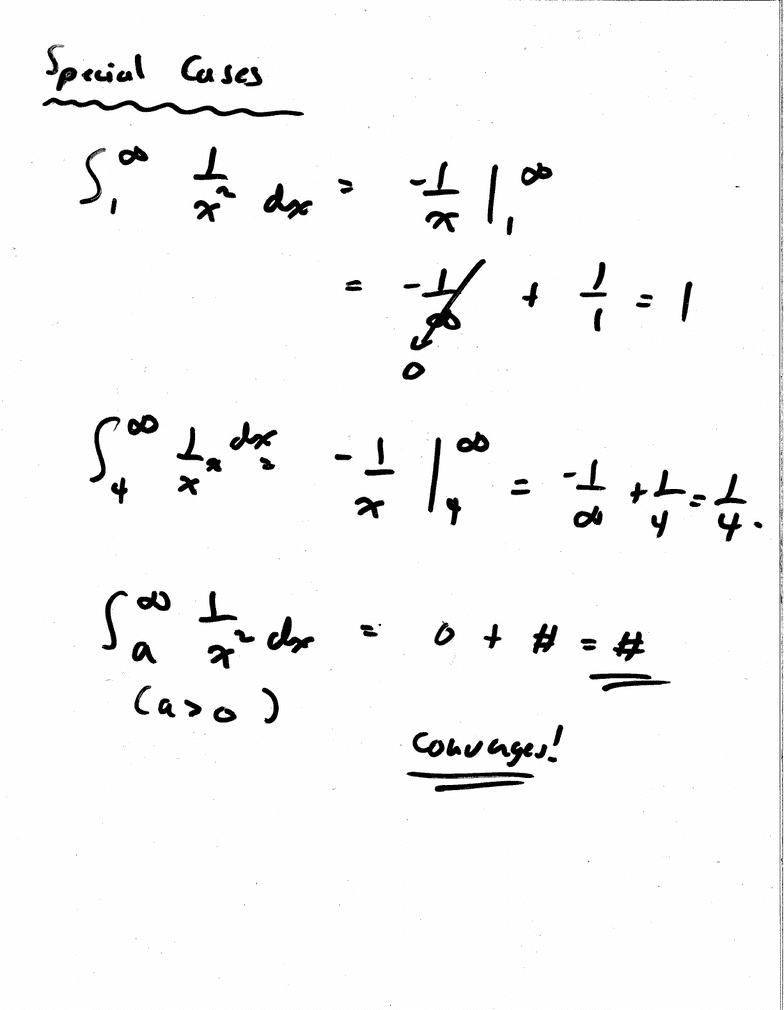 Special Cases
∫₁^∞ 1/x² dx = -1/x |₁^∞
= -1/∞ + 1/1 = 1
0
∫₄^∞ 1/x² dx = -1/x |₄^∞ = -1/∞ + 1/4 = 1/4.
∫ₐ^∞ 1/x² dx = 0 + # = #
(a > 0)
Converges!